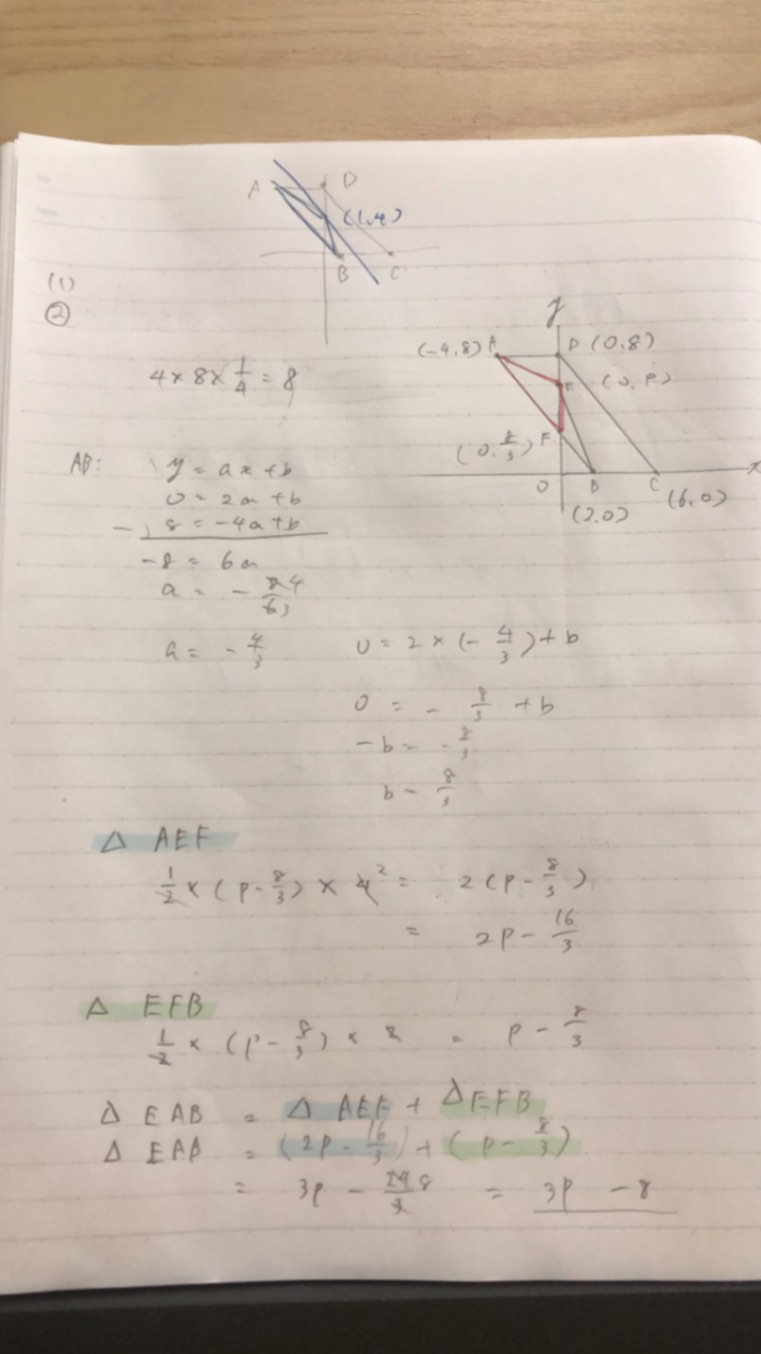 A D
(1,4)
B C
(1)
②
4×8×1/4=8
y
(-4,8) A D (0,8)
E (0,P)
(0,8/3) F
O B C x
(2,0) (6,0)
AB: y=ax+b
0=2a+b
-) 8=-4a+b
-8=6a
a=-
a=-4/3 0=2×(-4/3)+b
0=-8/3+b
-b=-8/3
b=8/3
△ AEF
1/2×(P-8/3)×4² = 2(P-8/3)
= 2P-16/3
△ EFB
1/2×(P-8/3)×2 = P-8/3
△ EAB = △ AEF + △EFB
△ EAB = (2P-16/3)+(P-8/3)
= 3P-24 8/3 = 3P-8